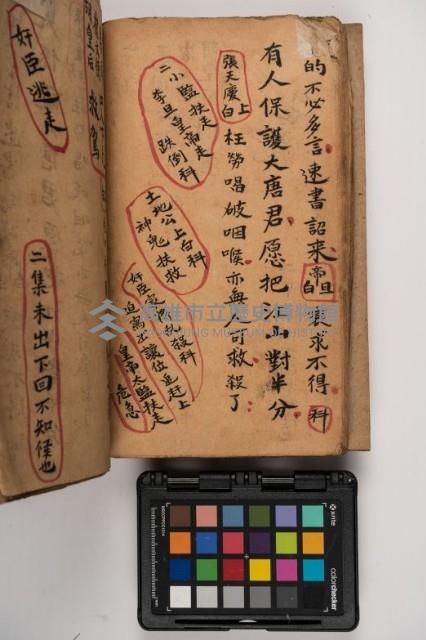 的不必多言速書詔來
帝旦白
求不得
科
有人保護大唐君愿把江山對半分
張天慶上白
枉勞唱破咽喉亦無
可救殺了
二小監扶走
李旦皇帝走
跌倒科
土地公上白科
神鬼扶救
奸臣
迫寫出讓位追趕上
皇帝太監扶走
危急
皇后
救駕
奸臣逃走
二集未出下回不知條也
高雄市立歷史博物館
KAOHSIUNG MUSEUM OF HISTORY
x-rite
colorchecker